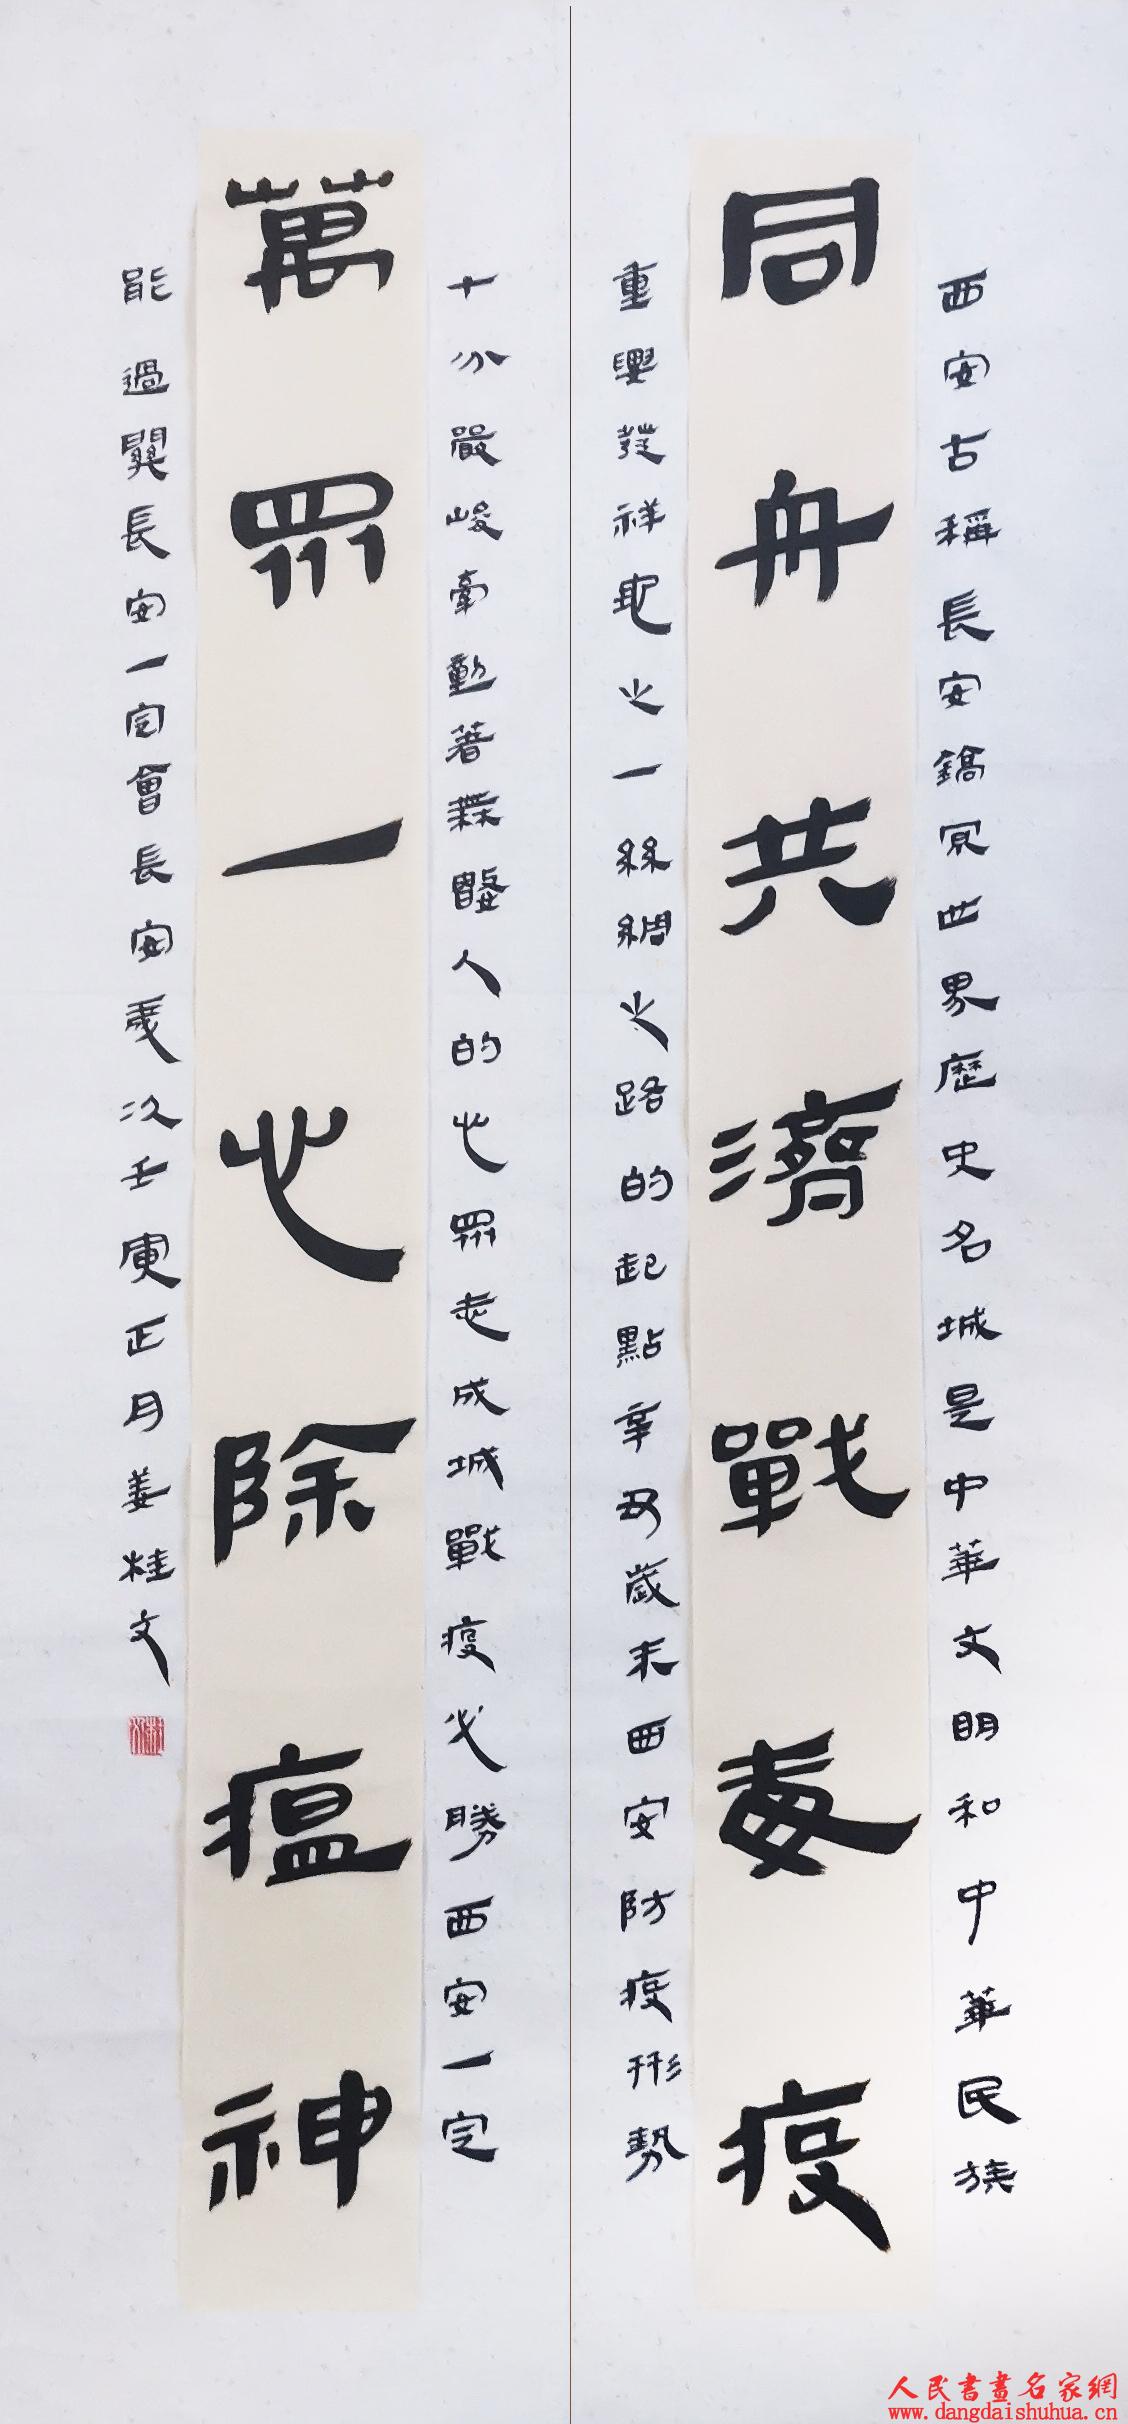 西安古稱長安鎬京世界歷史名城是中華文明和中華民族
同舟共濟戰毒疫
重要發祥地之一絲綢之路的起點辛丑歲末西安防疫形勢
十分嚴峻牽動著無數人的心眾志成城戰疫必勝西安一定
萬眾一心除瘟神
能過關長安一定會長安歲次壬寅正月姜桂文
人民書畫名家網
www.dangdaishuhua.cn